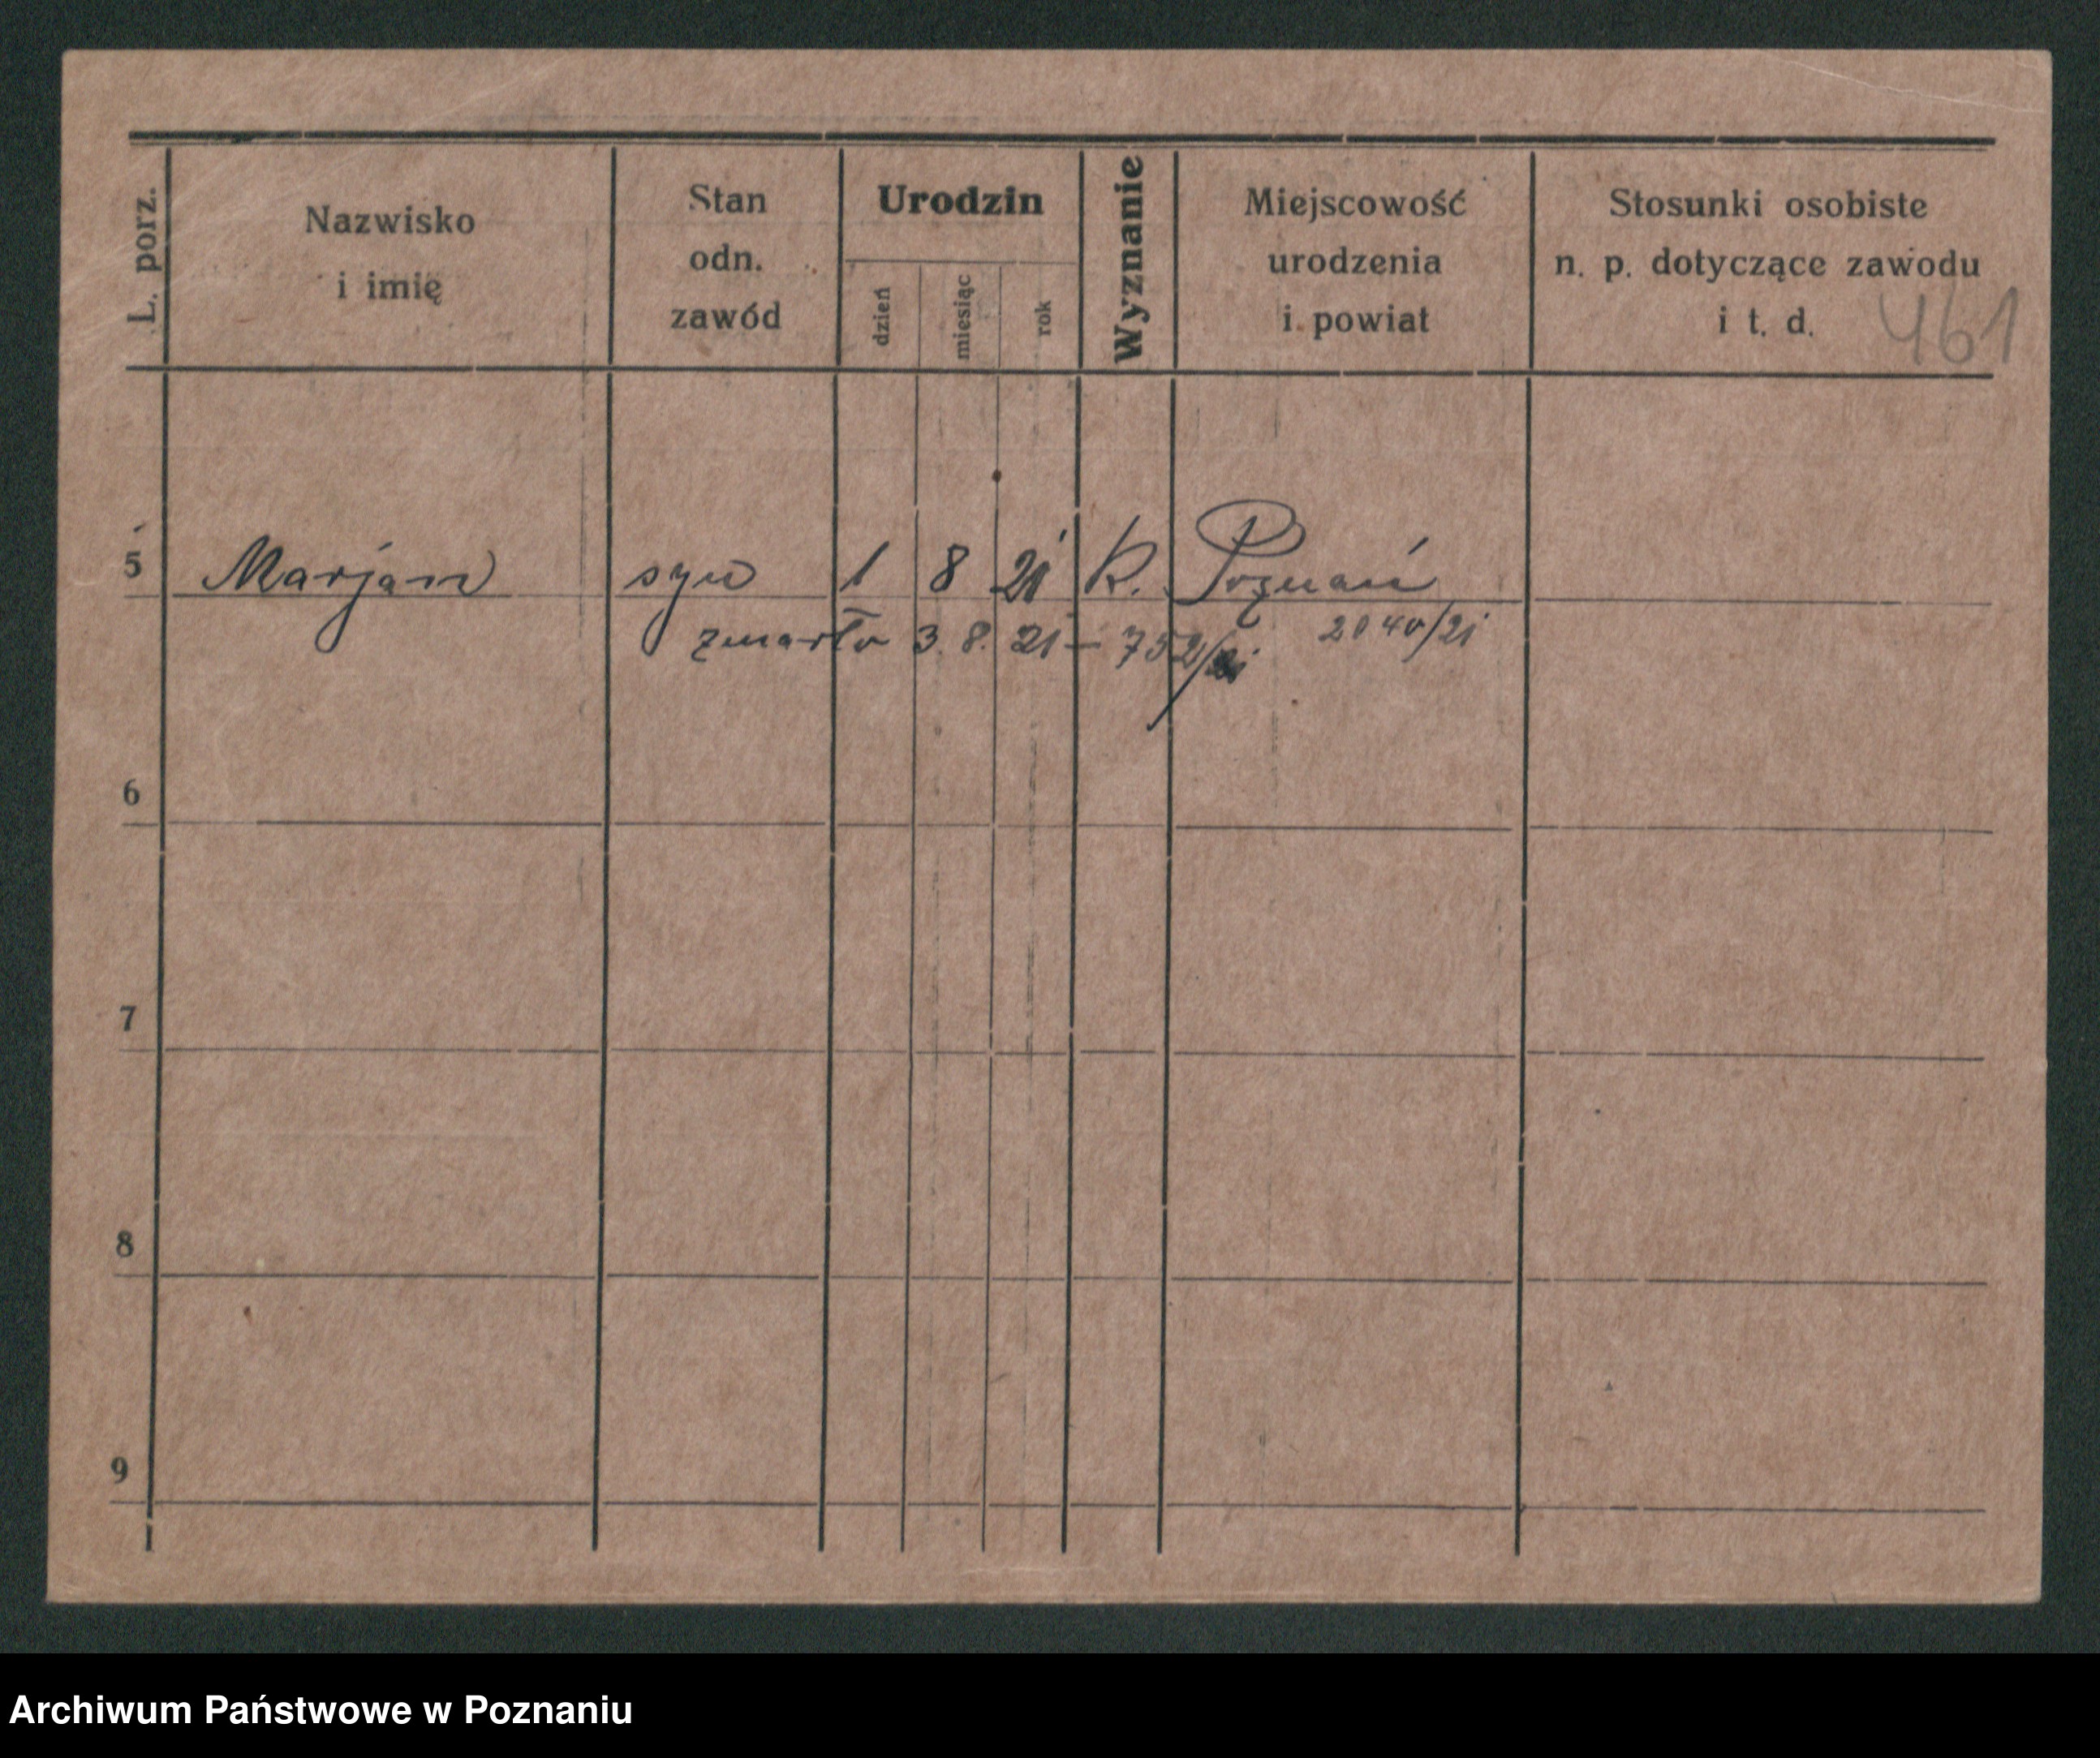 L. porz.
Nazwisko
i imię
Stan
odn.
zawód
Urodzin
dzień
miesiąc
rok
Wyznanie
Miejscowość
urodzenia
i powiat
Stosunki osobiste
n. p. dotyczące zawodu
i t. d.
461
5 Marjan syn 1 8 21 k. Poznań
zmarło 3. 8. 21 – 752/21 2040/21
6
7
8
9
Archiwum Państwowe w Poznaniu